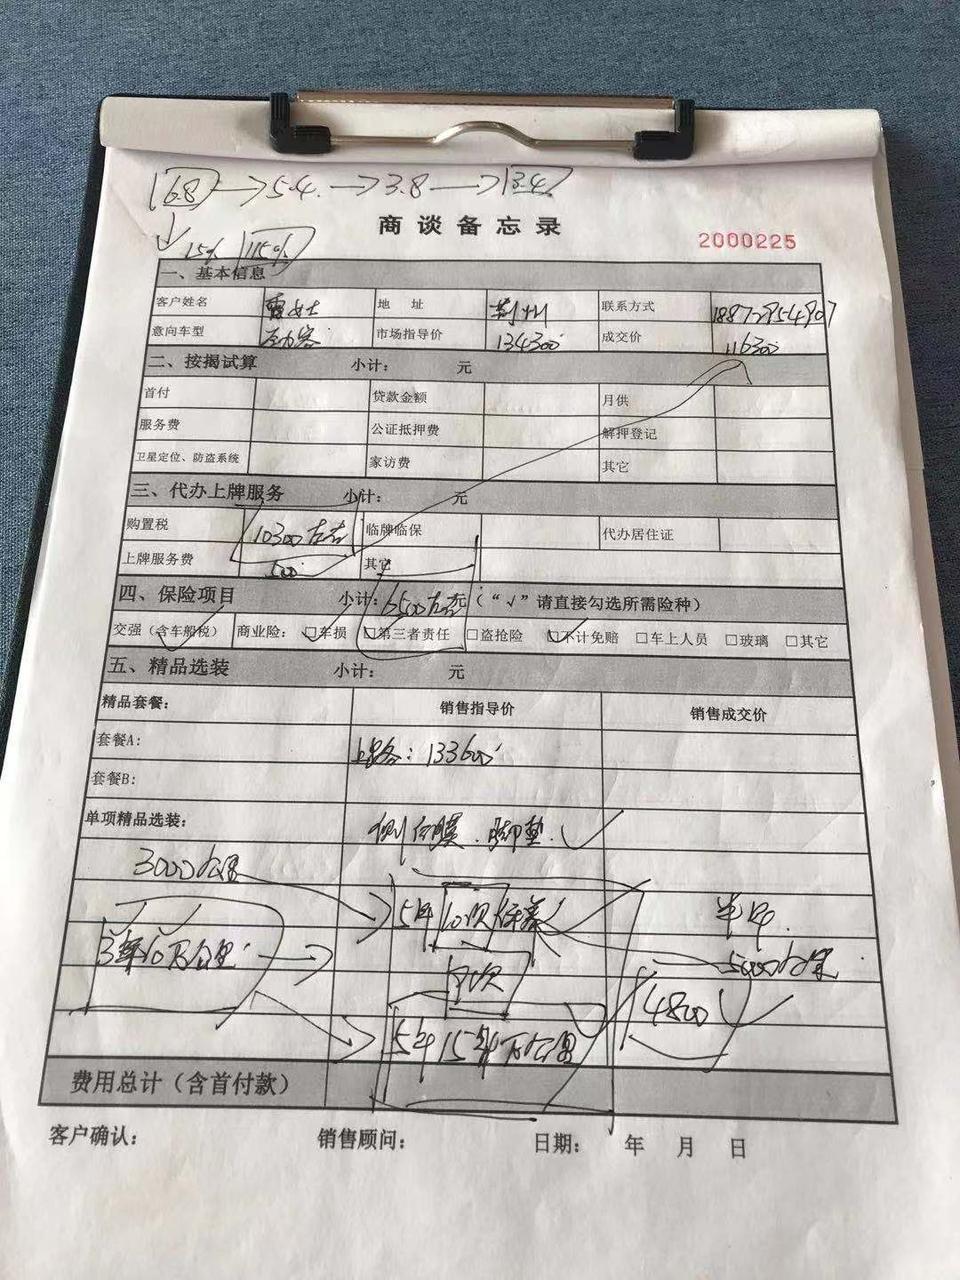 16.8→5.4→3.8→13.4
15% 115%
商谈备忘录
2000225
一、基本信息
客户姓名 地 址 荆州 联系方式 18872954907
意向车型 劲客 市场指导价 134300 成交价 116300
二、按揭试算 小计: 元
首付 贷款金额 月供
服务费 公证抵押费 解押登记
卫星定位、防盗系统 家访费 其它
三、代办上牌服务 小计: 元
购置税 10300左右 临牌临保 代办居住证
上牌服务费 500 其它
四、保险项目 小计: 6500左右 元 (“√”请直接勾选所需险种)
交强(含车船税) 商业险: □车损 □第三者责任 □盗抢险 □不计免赔 □车上人员 □玻璃 □其它
五、精品选装 小计: 元
精品套餐: 销售指导价 销售成交价
套餐A: 133600
套餐B:
单项精品选装: 脚垫
3000公里
5年10次保养
3年10万公里 5000公里
4800
5年15万公里
费用总计(含首付款)
客户确认: 销售顾问: 日期: 年 月 日